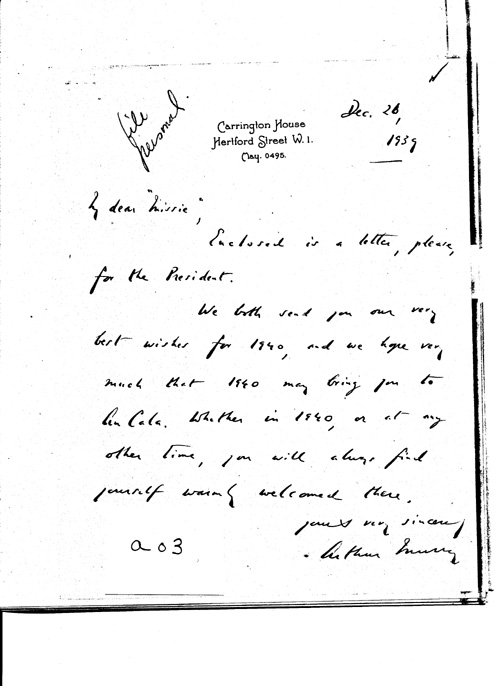 file
personal.
Carrington House
Hertford Street W.1.
May. 0495.
Dec. 26,
1939
My dear "Missie",
Enclosed is a letter, please,
for the President.
We both send you our very
best wishes for 1940, and we hope very
much that 1940 may bring you to
An Cala. Whether in 1940, or at any
other time, you will always find
yourself warmly welcomed there.
yours very sincerely
Arthur Murray
a03